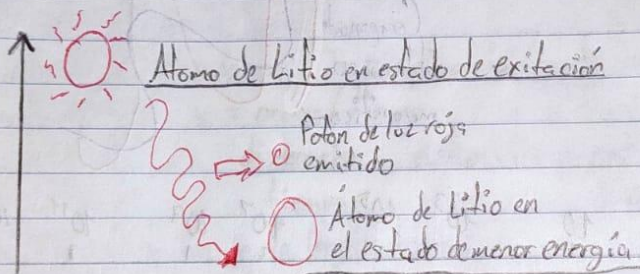 Atomo de Litio en estado de exitación
Foton de luz roja
emitido
Átomo de Litio en
el estado de menor energía